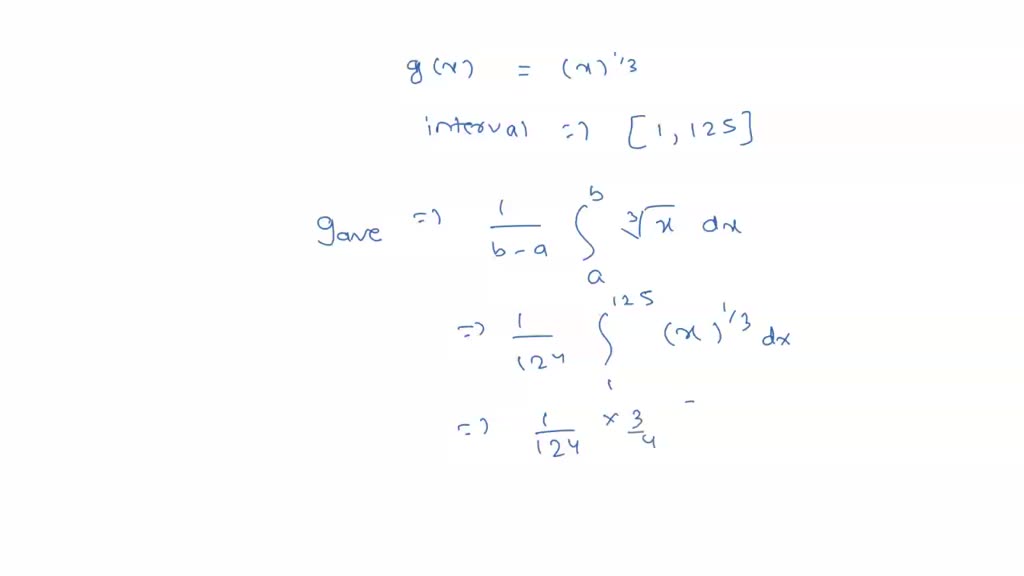 g(x) = (x)^1/3
interval => [1, 125]
gave => 1/(b-a) ∫_a^b ∛x dx
=> 1/124 ∫_1^125 (x)^1/3 dx
=> 1/124 × 3/4